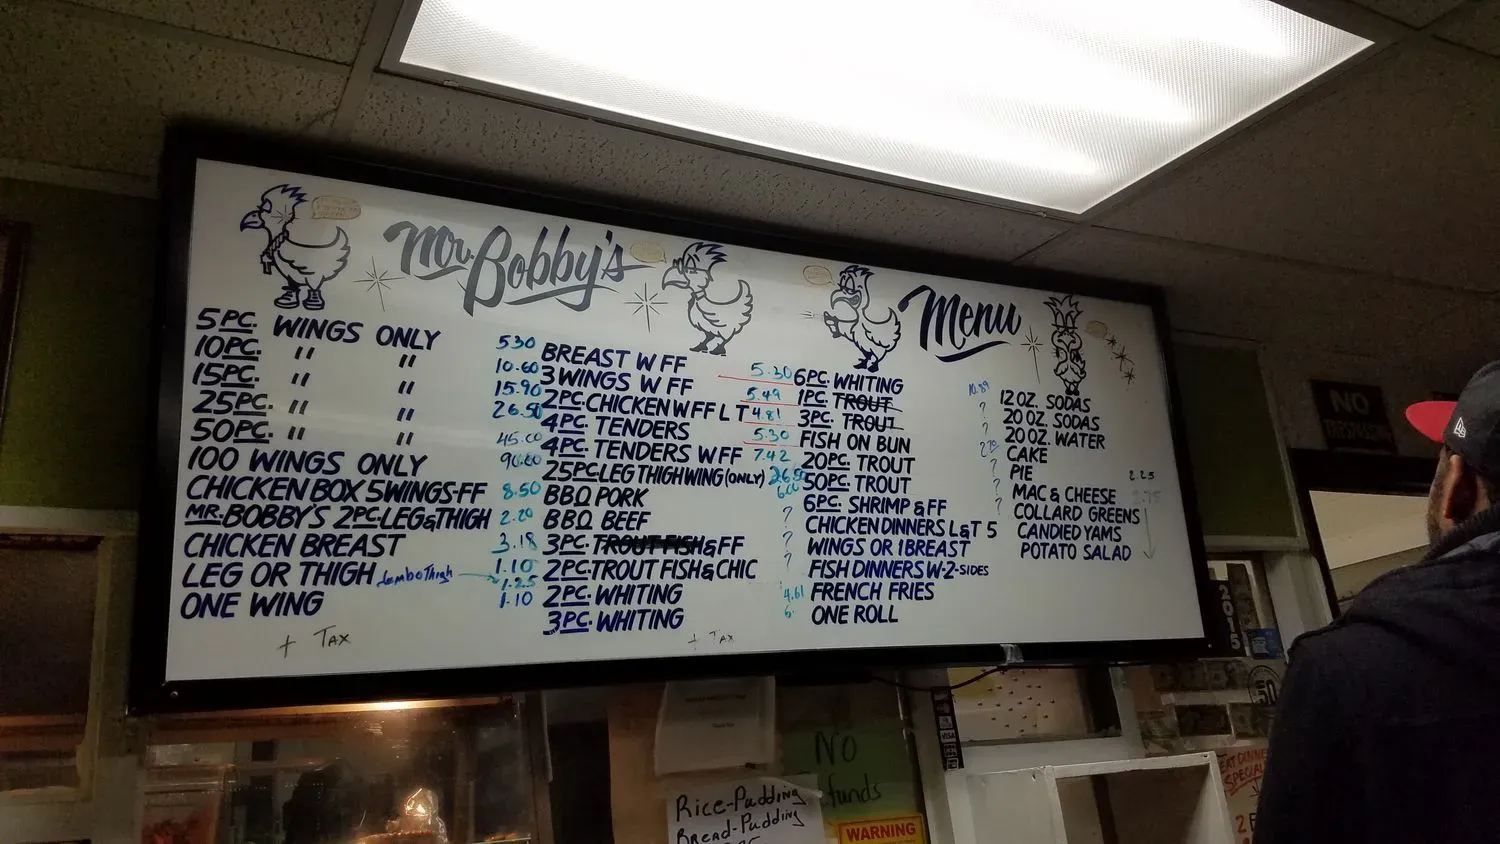 Mr. Bobby's Menu
5 PC. WINGS ONLY 5.30
10 PC. " " 10.60
15 PC. " " 15.90
25 PC. " " 26.50
50 PC. " " 45.00
100 WINGS ONLY 90.00
CHICKEN BOX 5 WINGS-FF 8.50
MR. BOBBY'S 2 PC. LEG & THIGH 2.20
CHICKEN BREAST 3.18
LEG OR THIGH 1.10
Jumbo Thigh 1.25
ONE WING 1.10
+ TAX
BREAST W FF 5.30
3 WINGS W FF 5.49
2 PC. CHICKEN W FF L T 4.81
4 PC. TENDERS 5.30
4 PC. TENDERS W FF 7.42
25 PC. LEG THIGH WING (ONLY) 26.50
BBQ PORK 6.00
BBQ BEEF ?
3 PC. TROUT FISH & FF ?
2 PC. TROUT FISH & CHIC ?
2 PC. WHITING 4.61
3 PC. WHITING 6.
+ TAX
6 PC. WHITING 10.89
1 PC. TROUT ?
3 PC. TROUT ?
FISH ON BUN
20 PC. TROUT ?
50 PC. TROUT ?
6 PC. SHRIMP & FF ?
CHICKEN DINNERS L & T 5
WINGS OR 1 BREAST
FISH DINNERS W-2-SIDES
FRENCH FRIES
ONE ROLL
12 OZ. SODAS
20 OZ. SODAS
20 OZ. WATER
CAKE
PIE 2.25
MAC & CHEESE
COLLARD GREENS
CANDIED YAMS
POTATO SALAD
NO
TRESPASSING
2015
50
VISA
NO
funds
Rice-Pudding
Bread-Pudding
WARNING
SPECIAL
2